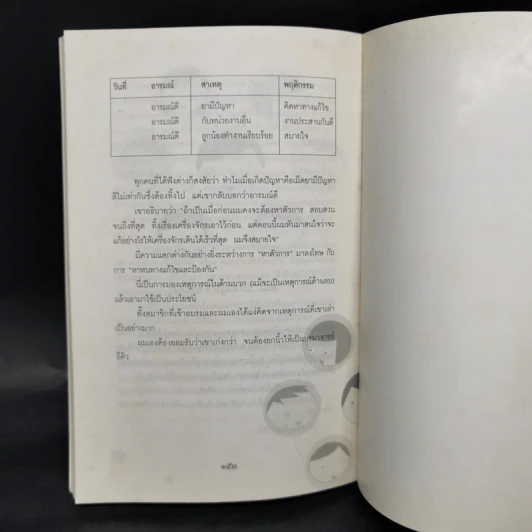 วันที่ อารมณ์ สาเหตุ พฤติกรรม
อารมณ์ดี ยามีปัญหา คิดหาทางแก้ไข
อารมณ์ดี กับหน่วยงานอื่น งานประสานกันดี
อารมณ์ดี ลูกน้องทำงานเรียบร้อย สบายใจ
ทุกคนที่ได้ฟังต่างก็สงสัยว่า ทำไมเมื่อเกิดปัญหาคือเม็ดยามีปัญหา
สีไม่เท่ากันซึ่งต้องทิ้งไป แต่เขากลับบอกว่าอารมณ์ดี
เขาอธิบายว่า "ถ้าเป็นเมื่อก่อนผมคงจะต้องหาตัวการ สอบสวน
จนถึงที่สุด ทิ้งเรื่องเครื่องจักรเอาไว้ก่อน แต่ตอนนี้ผมหันมาสนใจว่าจะ
แก้อย่างไรให้เครื่องจักรเดินได้เร็วที่สุด ผมจึงสบายใจ"
มีความแตกต่างกันอย่างยิ่งระหว่างการ "หาตัวการ" มาลงโทษ กับ
การ "หาหนทางแก้ไขและป้องกัน"
นี่เป็นการมองเหตุการณ์ในด้านบวก (แม้จะเป็นเหตุการณ์ด้านลบ)
แล้วเอามาใช้เป็นประโยชน์
ทั้งสมาชิกที่เข้าอบรมและผมเองได้แง่คิดจากเหตุการณ์ที่เขาเล่า
เป็นอย่างมาก
ผมเองต้องยอมรับว่าเขาเก่งกว่า จนต้องยกนิ้วให้เป็นปรมาจารย์
อีคิว